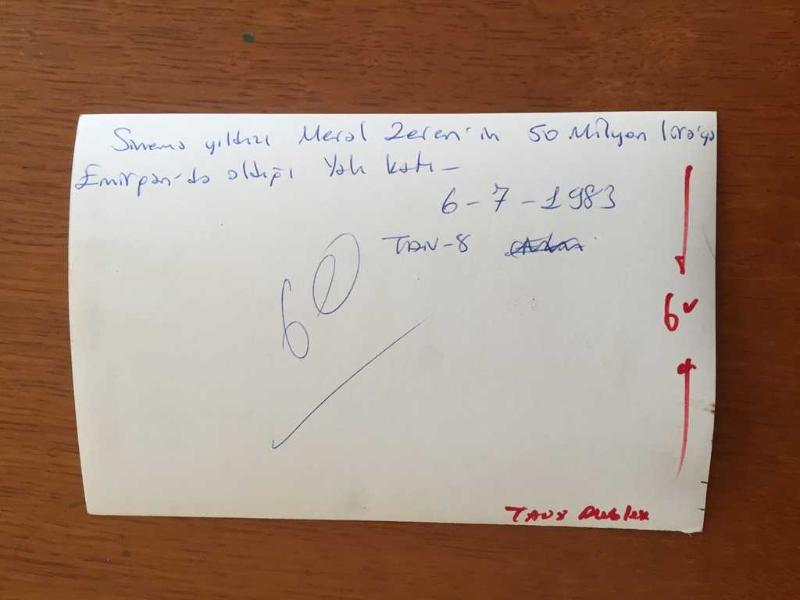 Sinema yıldızı Meral Zeren'in 50 Milyon lira'ya
Emirgan'da aldığı Yalı katı-
6-7-1983
TAN-8
60
6